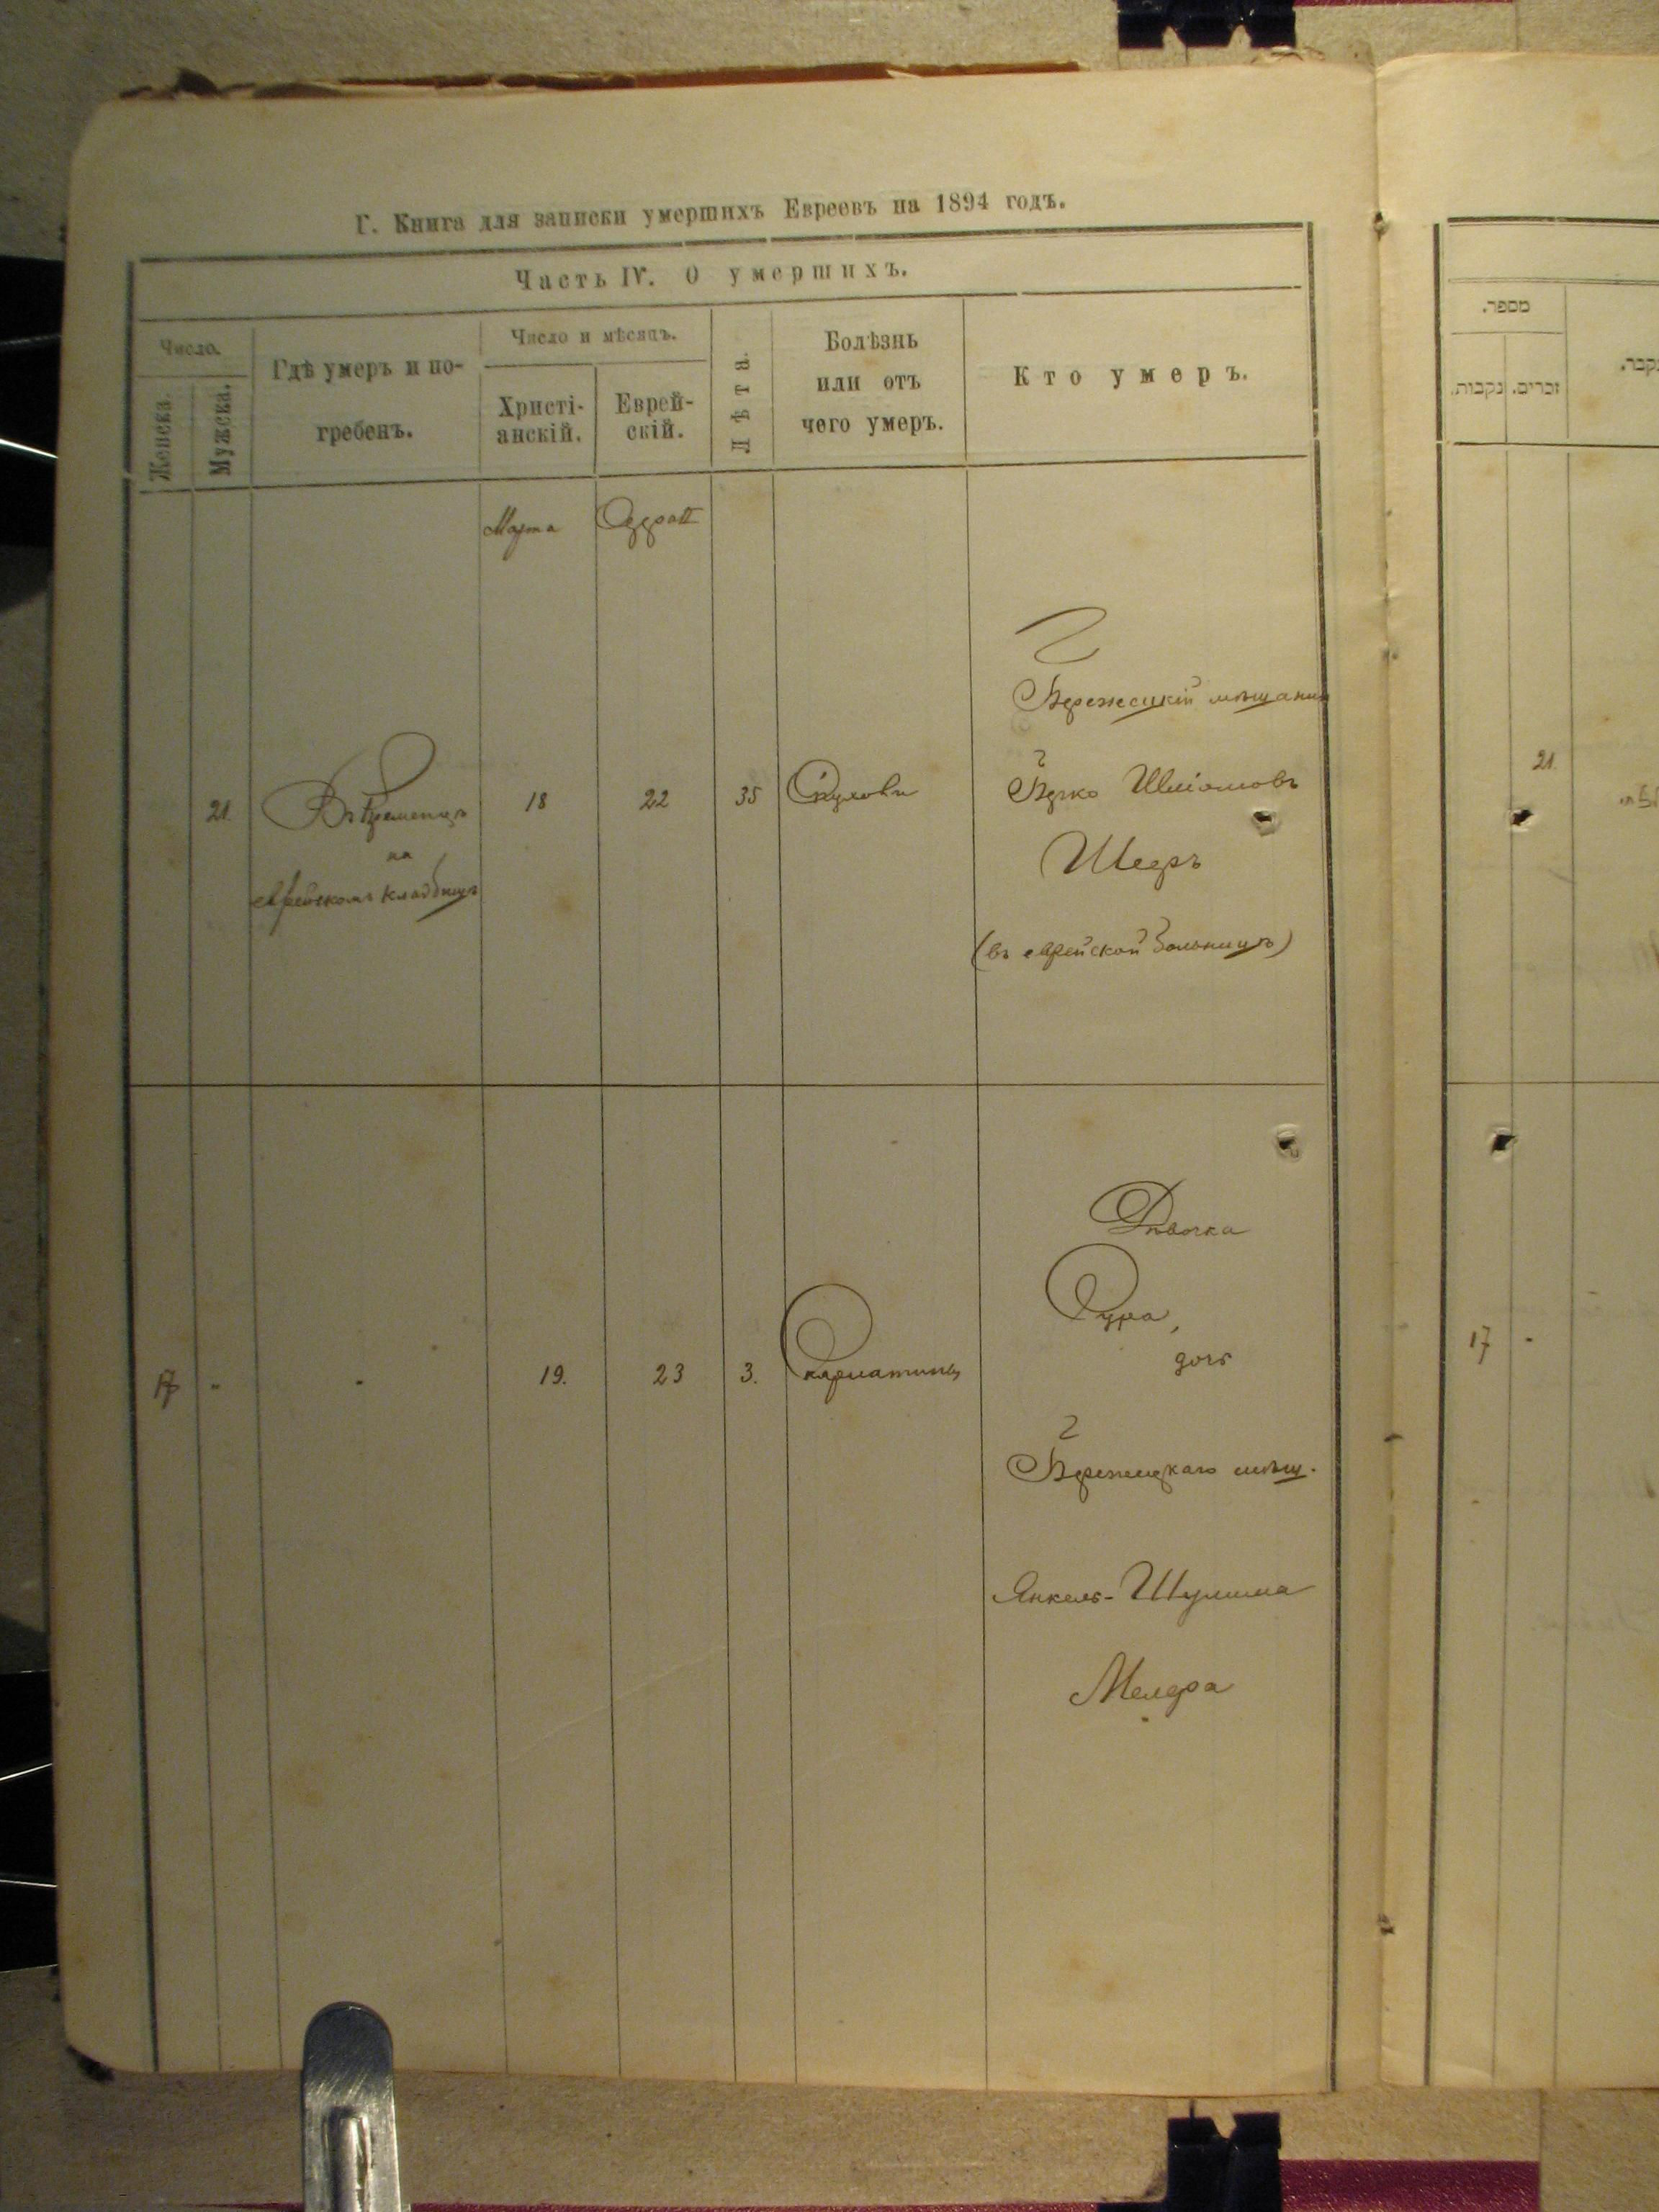 Г. Книга для записки умершихъ Евреевъ на 1894 годъ.
Часть IV. О умершихъ.
Число.
Женска.
Мужска.
Гдѣ умеръ и по-
гребенъ.
Число и мѣсяцъ.
Христі-
анскій.
Еврей-
скій.
Лѣта.
Болѣзнь
или отъ
чего умеръ.
Кто умеръ.
Марта
21.
Въ Кременцѣ
на
еврейскомъ кладбищѣ
18
22
35
Бережецкій мѣщанинъ
Шедръ
(въ еврейской больницѣ)
17
-
-
19.
23
3.
Скарлатины
Дѣвочка
Сура,
дочь
Бережецкаго мѣщ.
Янкель-Шулима
Мелера
מספר.
נקבות.
זכרים.
21.
17 -